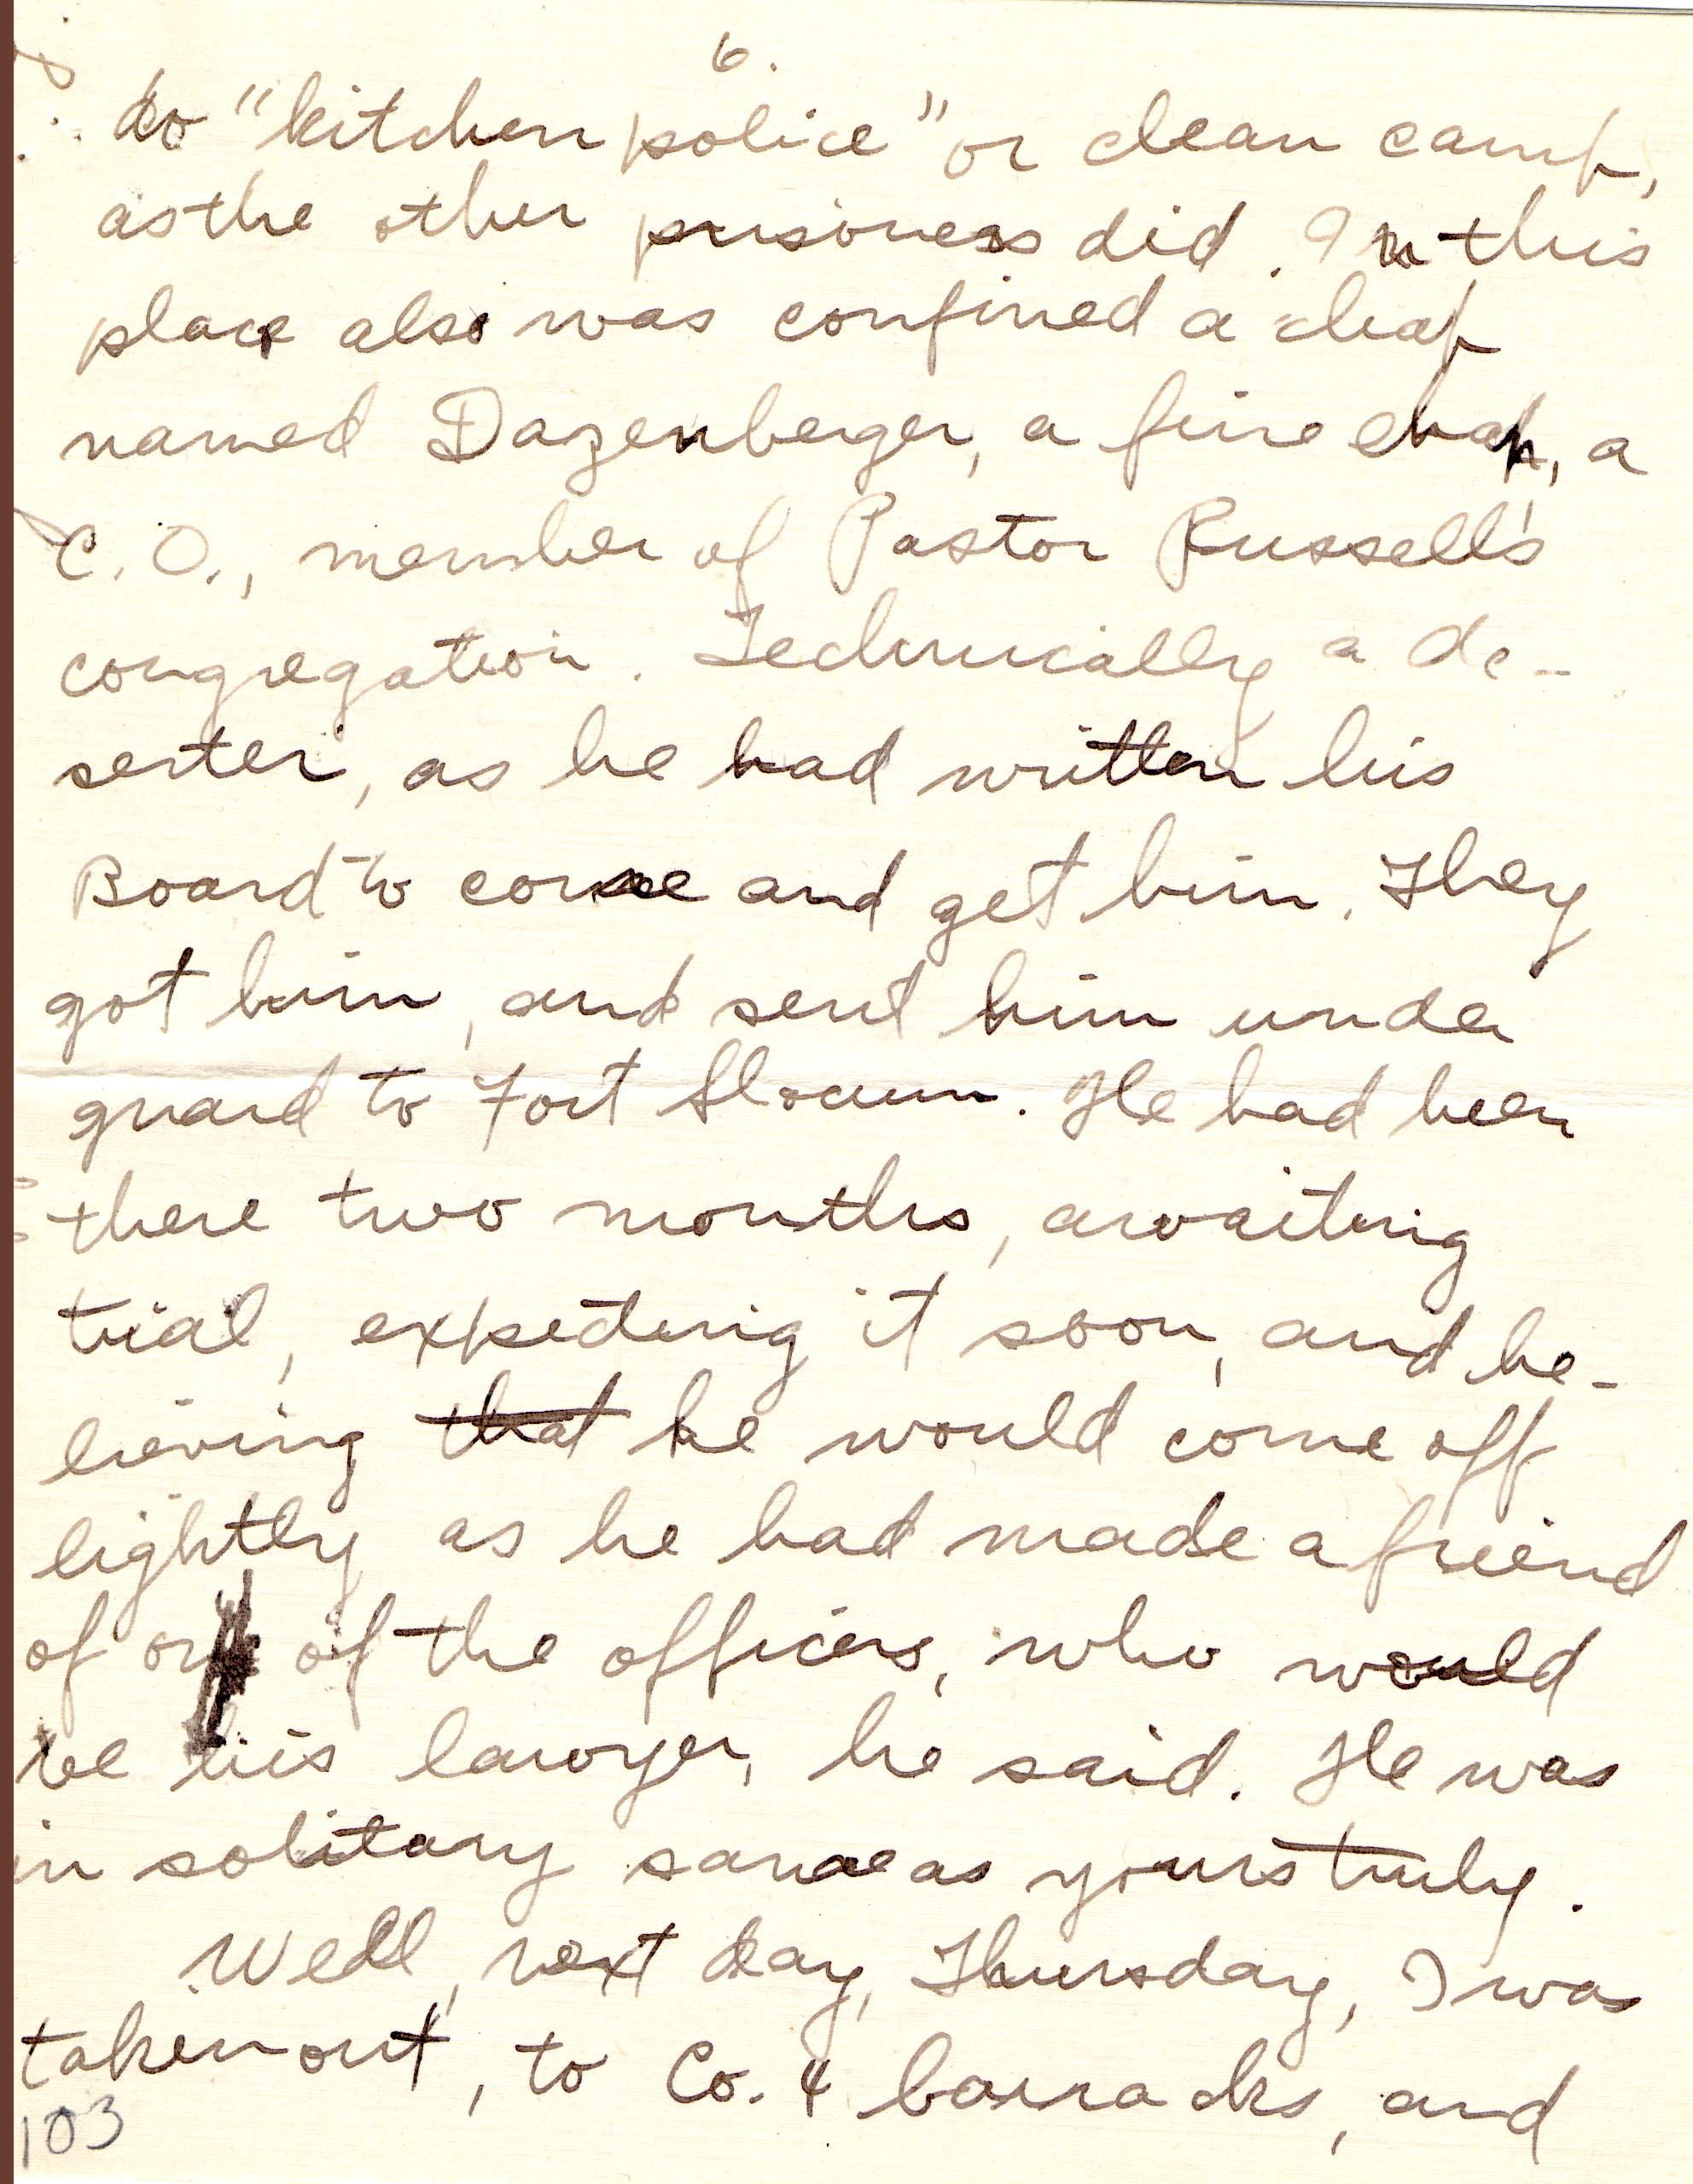 6.
do "kitchen police" or clean camp,
as the other prisoners did. In this
place also was confined a chap
named Dazenberger, a fine chap, a
C.O., member of Pastor Russell's
congregation. Technically a de-
serter, as he had written his
Board to come and get him. They
got him, and sent him under
guard to Fort Slocum. He had been
there two months, awaiting
trial, expecting it soon, and be-
lieving that he would come off
lightly as he had made a friend
of one of the officers, who would
be his lawyer, he said. He was
in solitary same as yours truly.
Well, next day, Thursday, I was
taken out, to Co. 4 barracks, and
103